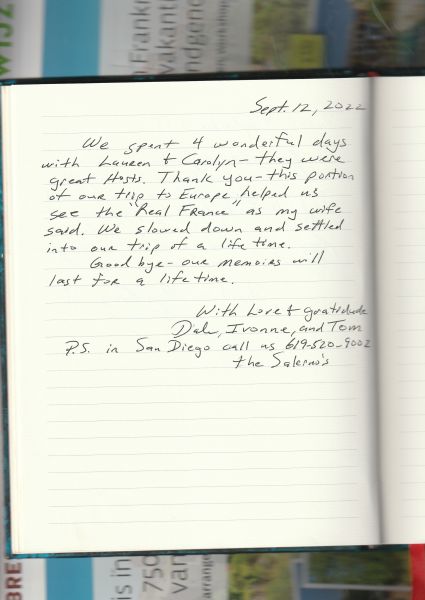 Sept. 12, 2022
We spent 4 wonderful days
with Lauren & Carolyn- they were
great Hosts. Thank you- this portion
of our trip to Europe helped us
see the "Real France" as my wife
said. We slowed down and settled
into our trip of a life time.
Good bye- our memoirs will
last for a life time.
With Love & gratidude
Dale, Ivonne, and Tom
P.S. in San Diego call us 619-520-9002
the Salerno's
n Frankri
vakanti
ndgeno
is in
750
van
arrange
BRE